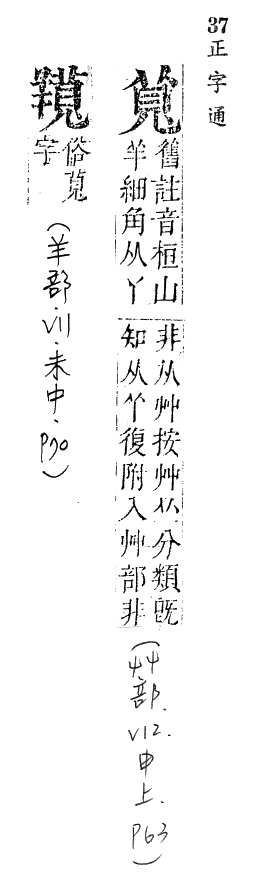 37正字通
萈
舊註音桓山
羊細角从丫
非从艸按艸分類旣
知从復附入艸部非
(艸部.V12.申上.P63)
俗萈
字
(羊部.V11.未中.P70)